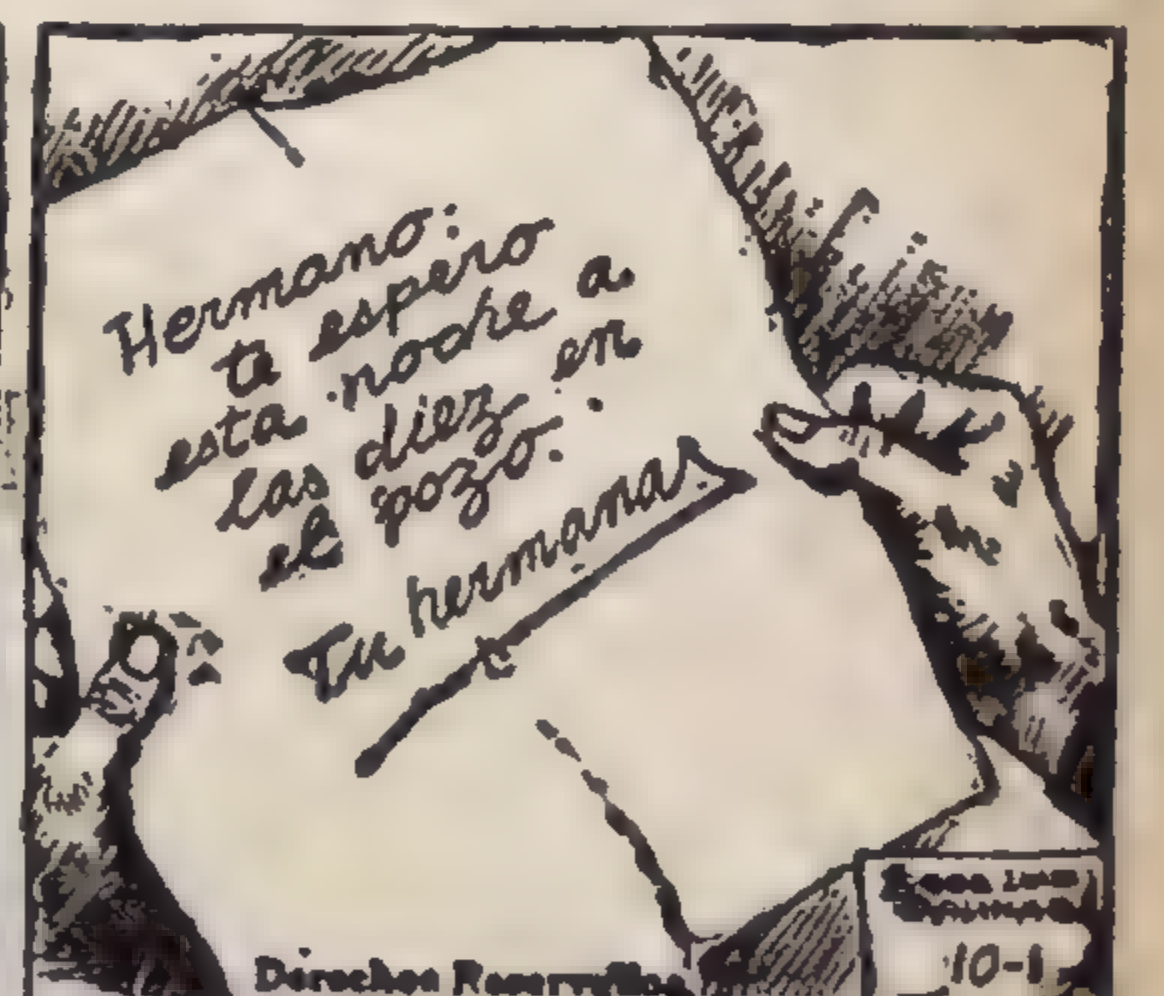 Hermano:
te espero
esta noche a
las diez en
el pozo.
Tu hermana
Derechos Reservados
10-1